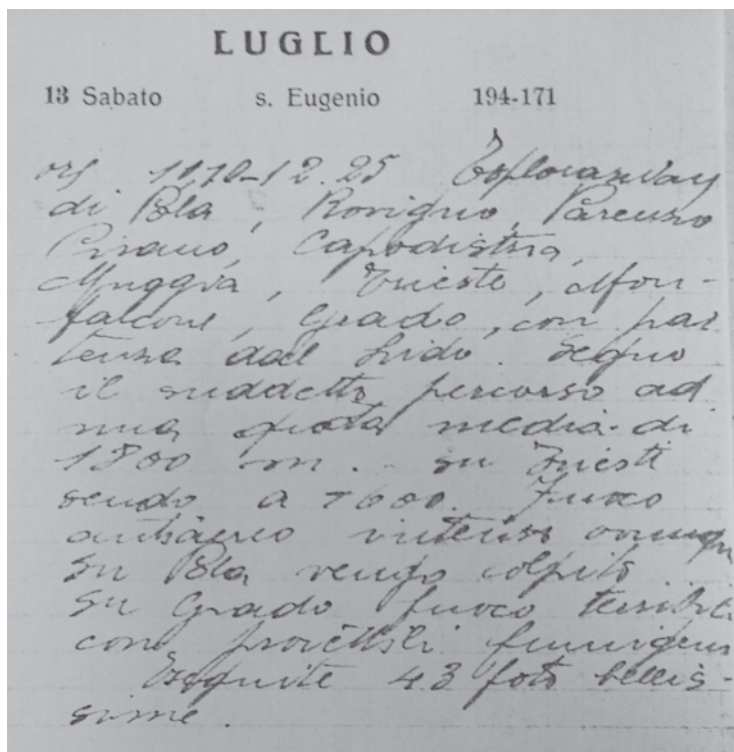 LUGLIO
13 Sabato s. Eugenio 194-171
ore 10.70-12.25 Esplorazione
di Pola, Rovigno, Parenzo
Pirano, Capodistria,
Muggia, Trieste, Mon-
falcone, Grado, con par
tenza dal Lido. Seguo
il suddetto percorso ad
una quota media di
1800 m. su Trieste
scendo a 1600. Fuoco
antiaereo intenso ovunque
su Pola vengo colpito
su Grado fuoco terribile
con proiettili fumigeni
Eseguite 43 foto bellis-
sime.